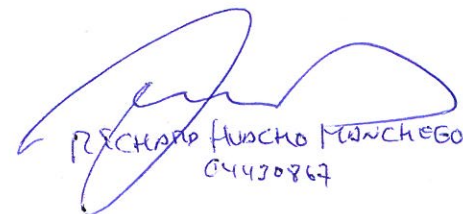 RICHARD HUACHO MANCHEGO
04430867